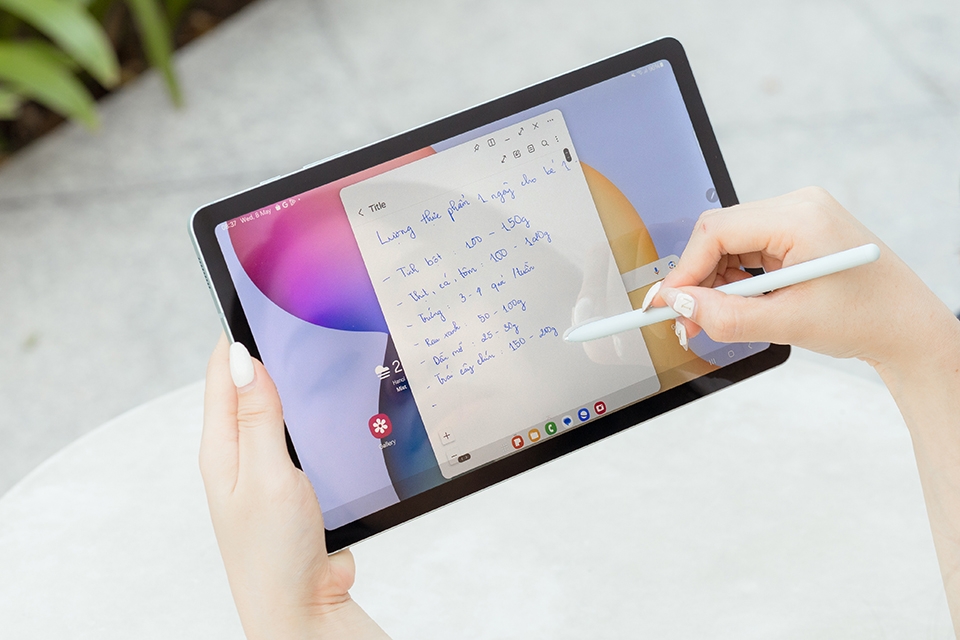 :37 Wed, 8 May
Title
Lượng thực phẩm 1 ngày cho bé 1
- Tinh bột : 100 - 150g
- Thịt, cá, tôm : 100 - 120g
- Trứng : 3 - 4 quả/tuần
- Rau xanh : 50 - 100g
- Dầu mỡ : 25 - 30g
- Trái cây chín : 150 - 200g
-
2
Hanoi
Mist
Gallery